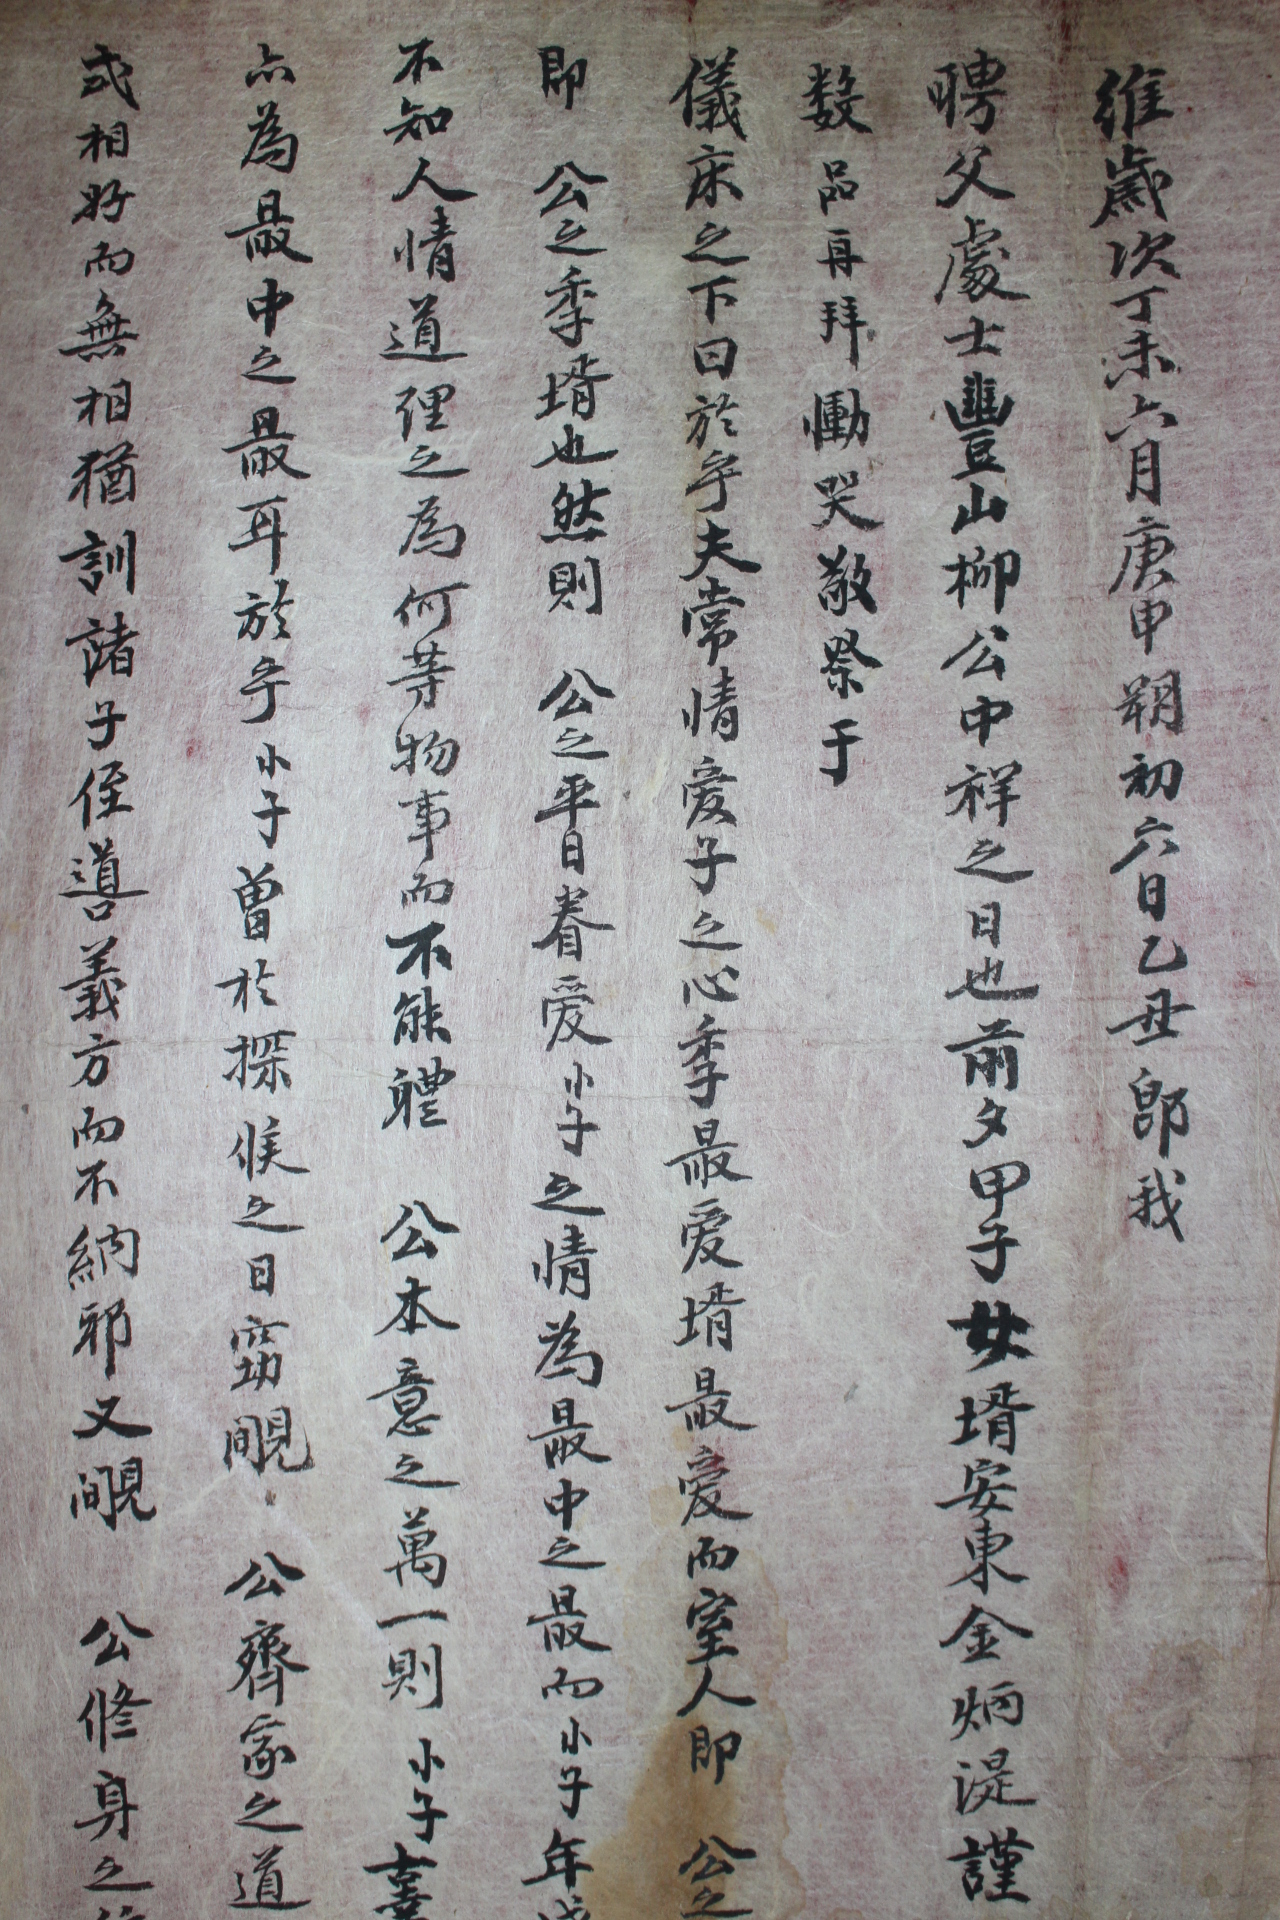 維歲次丁未六月庚申朔初六日乙丑卽我
聘父處士豊山柳公中祥之日也前夕甲子女壻安東金炳湜謹
数品再拜慟哭敬祭于
儀床之下曰於乎夫常情愛子之心季最愛壻最愛而室人即 公之
即 公之季壻也然則 公之平日眷愛小子之情為最中之最而小子年
不知人情道理之為何等物事而不能軆 公本意之萬一則小子
亦為最中之最耳於乎小子曾於探候之日窃覵 公齊家之道
式相好而無相猶訓諸子侄導義方而不納邪又覵 公修身之